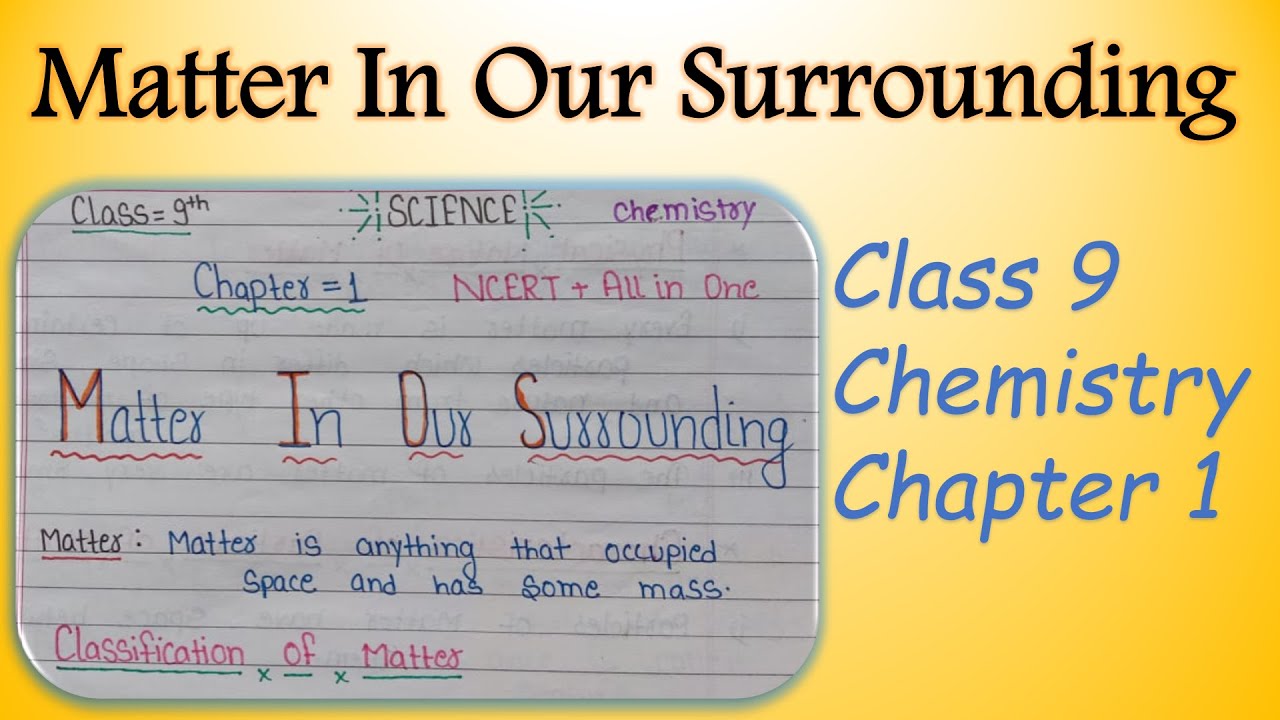 Matter In Our Surrounding
Class = 9th SCIENCE Chemistry
Chapter = 1 NCERT + All in One
Matter In Our Surrounding
Matter : Matter is anything that occupied
Space and has Some mass.
Classification of Matter
Class 9
Chemistry
Chapter 1